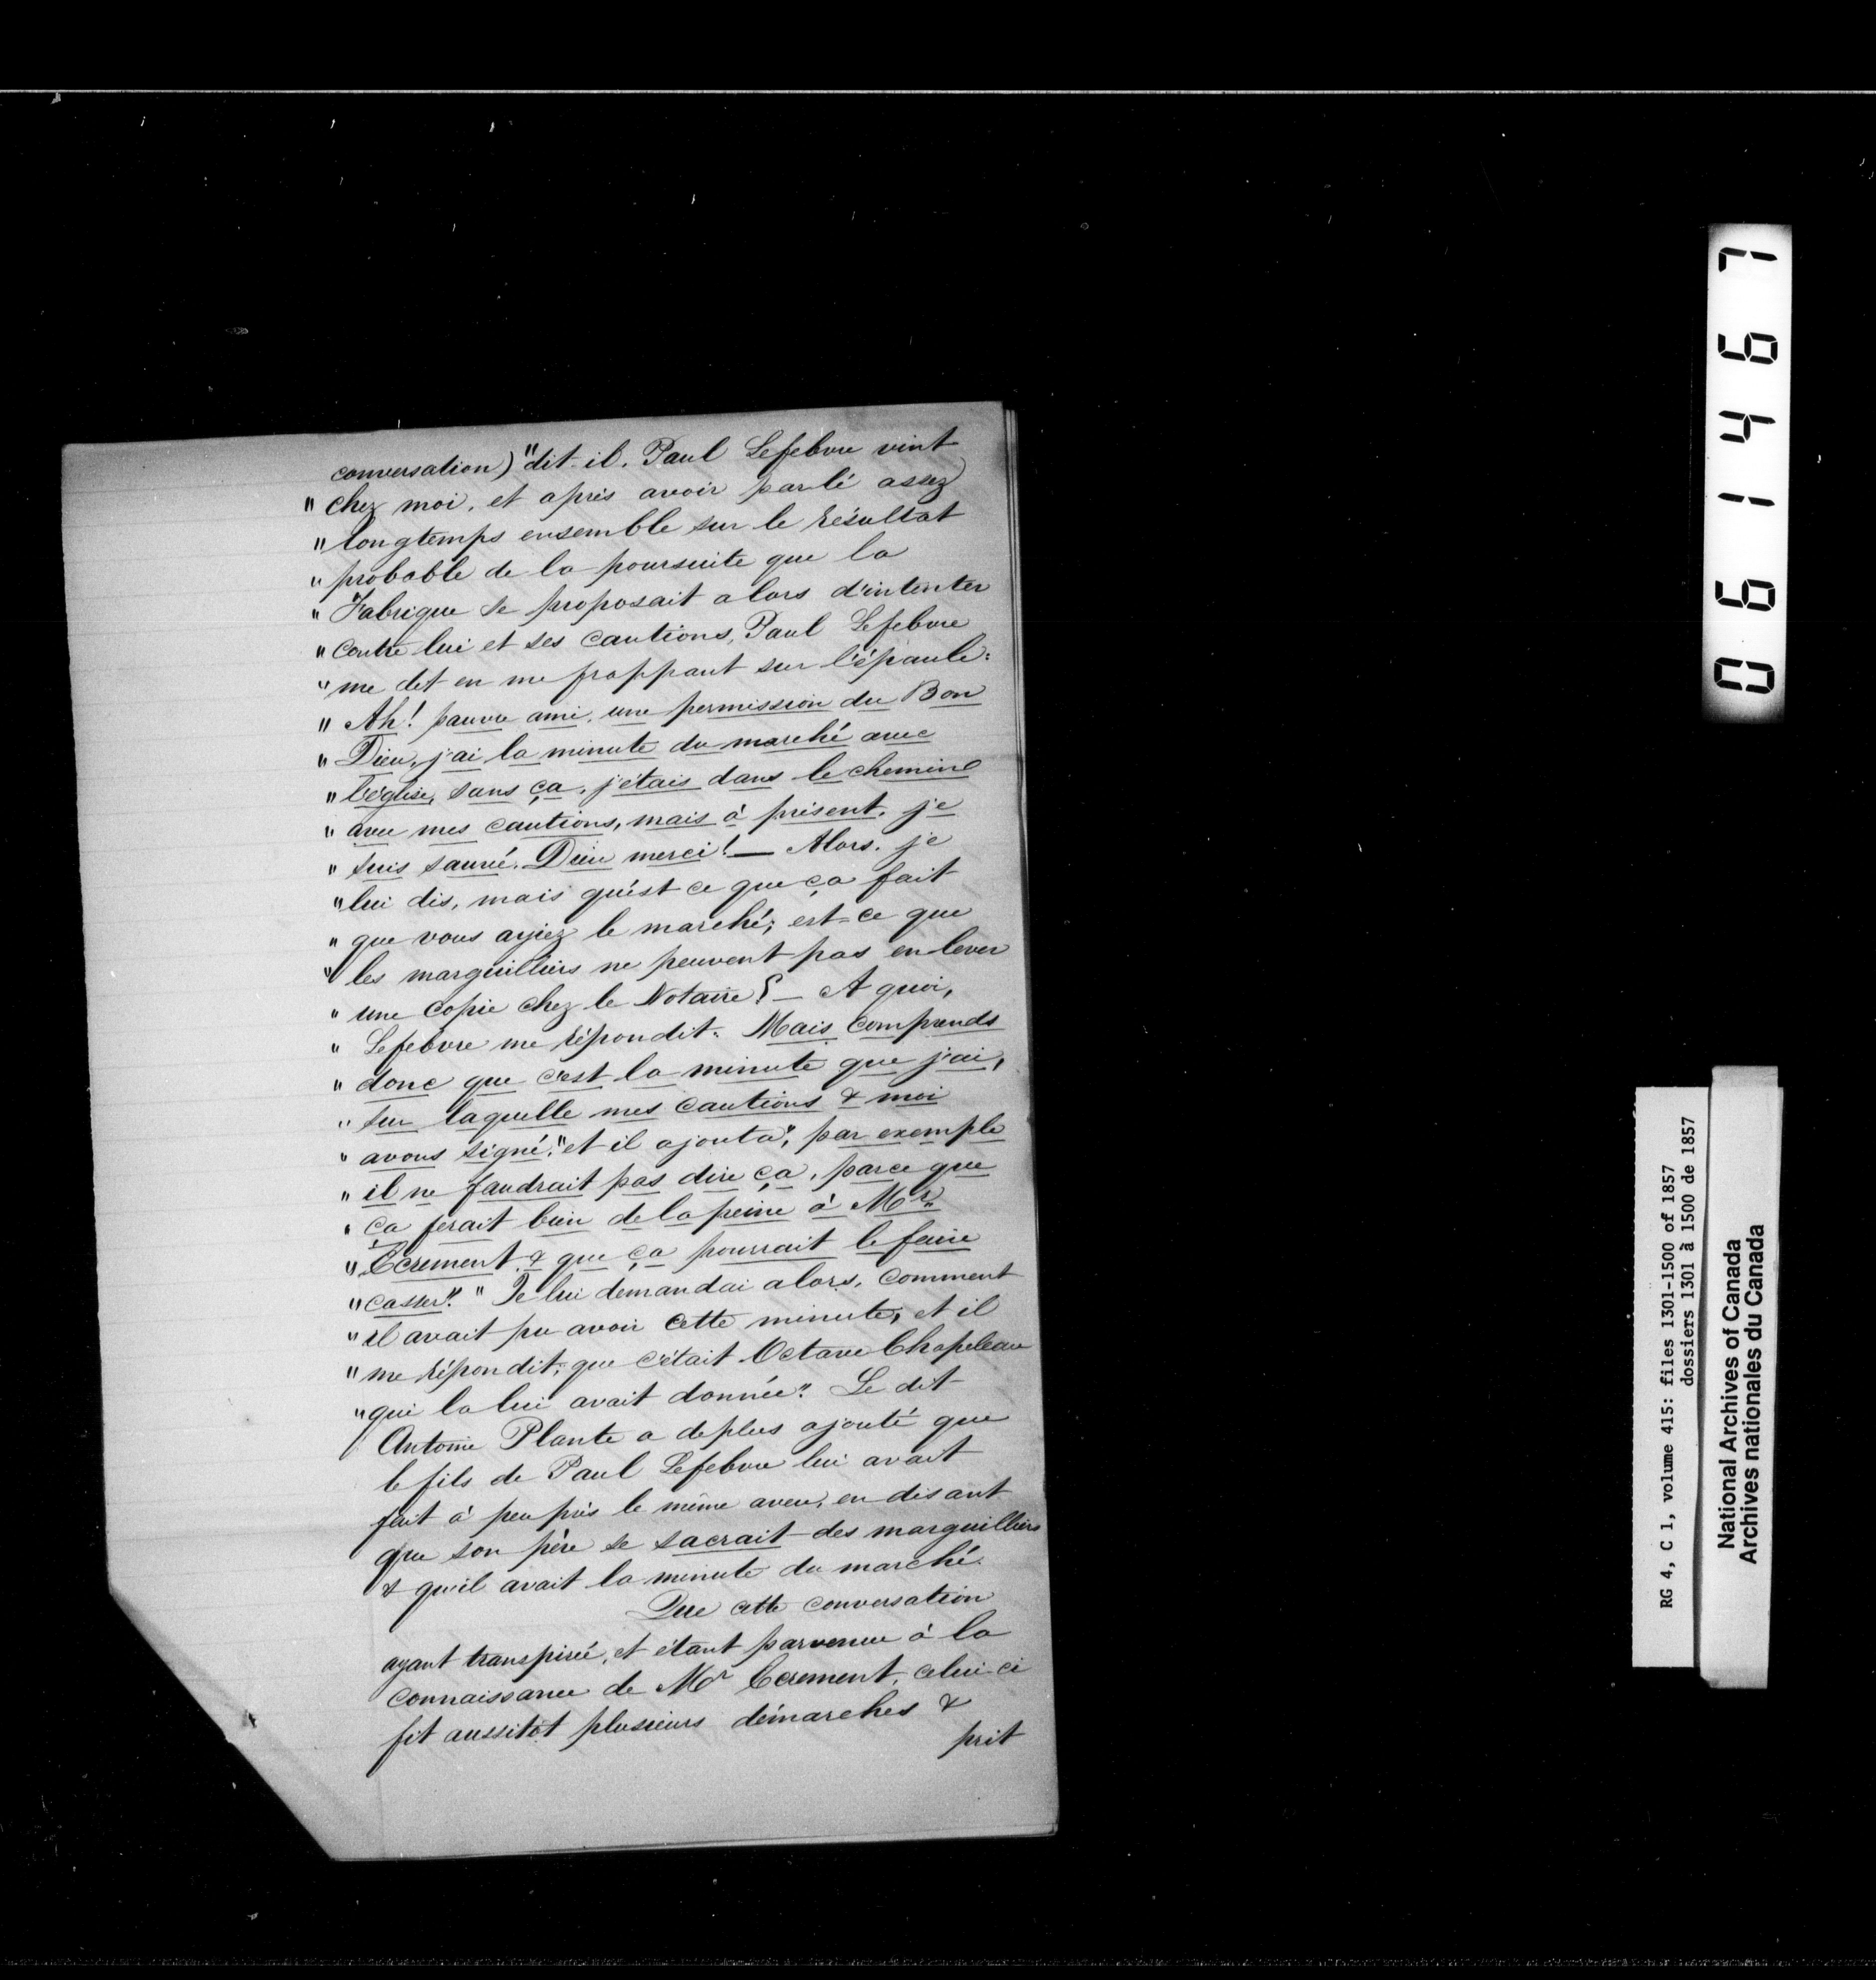 conversation) "dit-il. Paul Lefebvre vint
" chez moi, et après avoir parlé assez
" longtemps ensemble sur le résultat
" probable de la poursuite que la
" Fabrique se proposait alors d'intenter
" contre lui et ses cautions, Paul Lefebvre
" me dit en me frappant sur l'épaule:
" Ah! pauvre ami, une permission du Bon
" Dieu, j'ai la minute du marché avec
" l'église, sans ça, j'étais dans le chemin
" avec mes cautions, mais à présent, je
" suis sauvé. Dieu merci! — Alors, je
" lui dis, mais qu'est ce que ça fait
" que vous ayiez le marché; est-ce que
" les marguilliers ne peuvent pas en lever
" une copie chez le Notaire? — A quoi,
" Lefebvre me répondit: Mais comprends
" donc que c'est la minute que j'ai,
" sur laquelle mes cautions & moi
" avons signé," et il ajouta", par exemple
" il ne faudrait pas dire ça, parce que
" ça ferait bien de la peine à Mr.
" Ecrement & que ça pourrait le faire
" casser". " Je lui demandai alors, comment
" il avait pu avoir cette minute, et il
" me répondit, que c'était Octave Chapeleau
" qui la lui avait donnée". Le dit
Antoine Plante a deplus ajouté que
le fils de Paul Lefebvre lui avait
fait à peu près le même aveu, en disant
que son père se sacrait des marguilliers
& qu'il avait la minute du marché.
Que cette conversation
ayant transpirée, et étant parvenue à la
connaissance de Mr Ecrement, celui-ci
fit aussitot plusieurs démarches &
prit
061467
RG 4, C 1, volume 415: files 1301-1500 of 1857
dossiers 1301 à 1500 de 1857
National Archives of Canada
Archives nationales du Canada